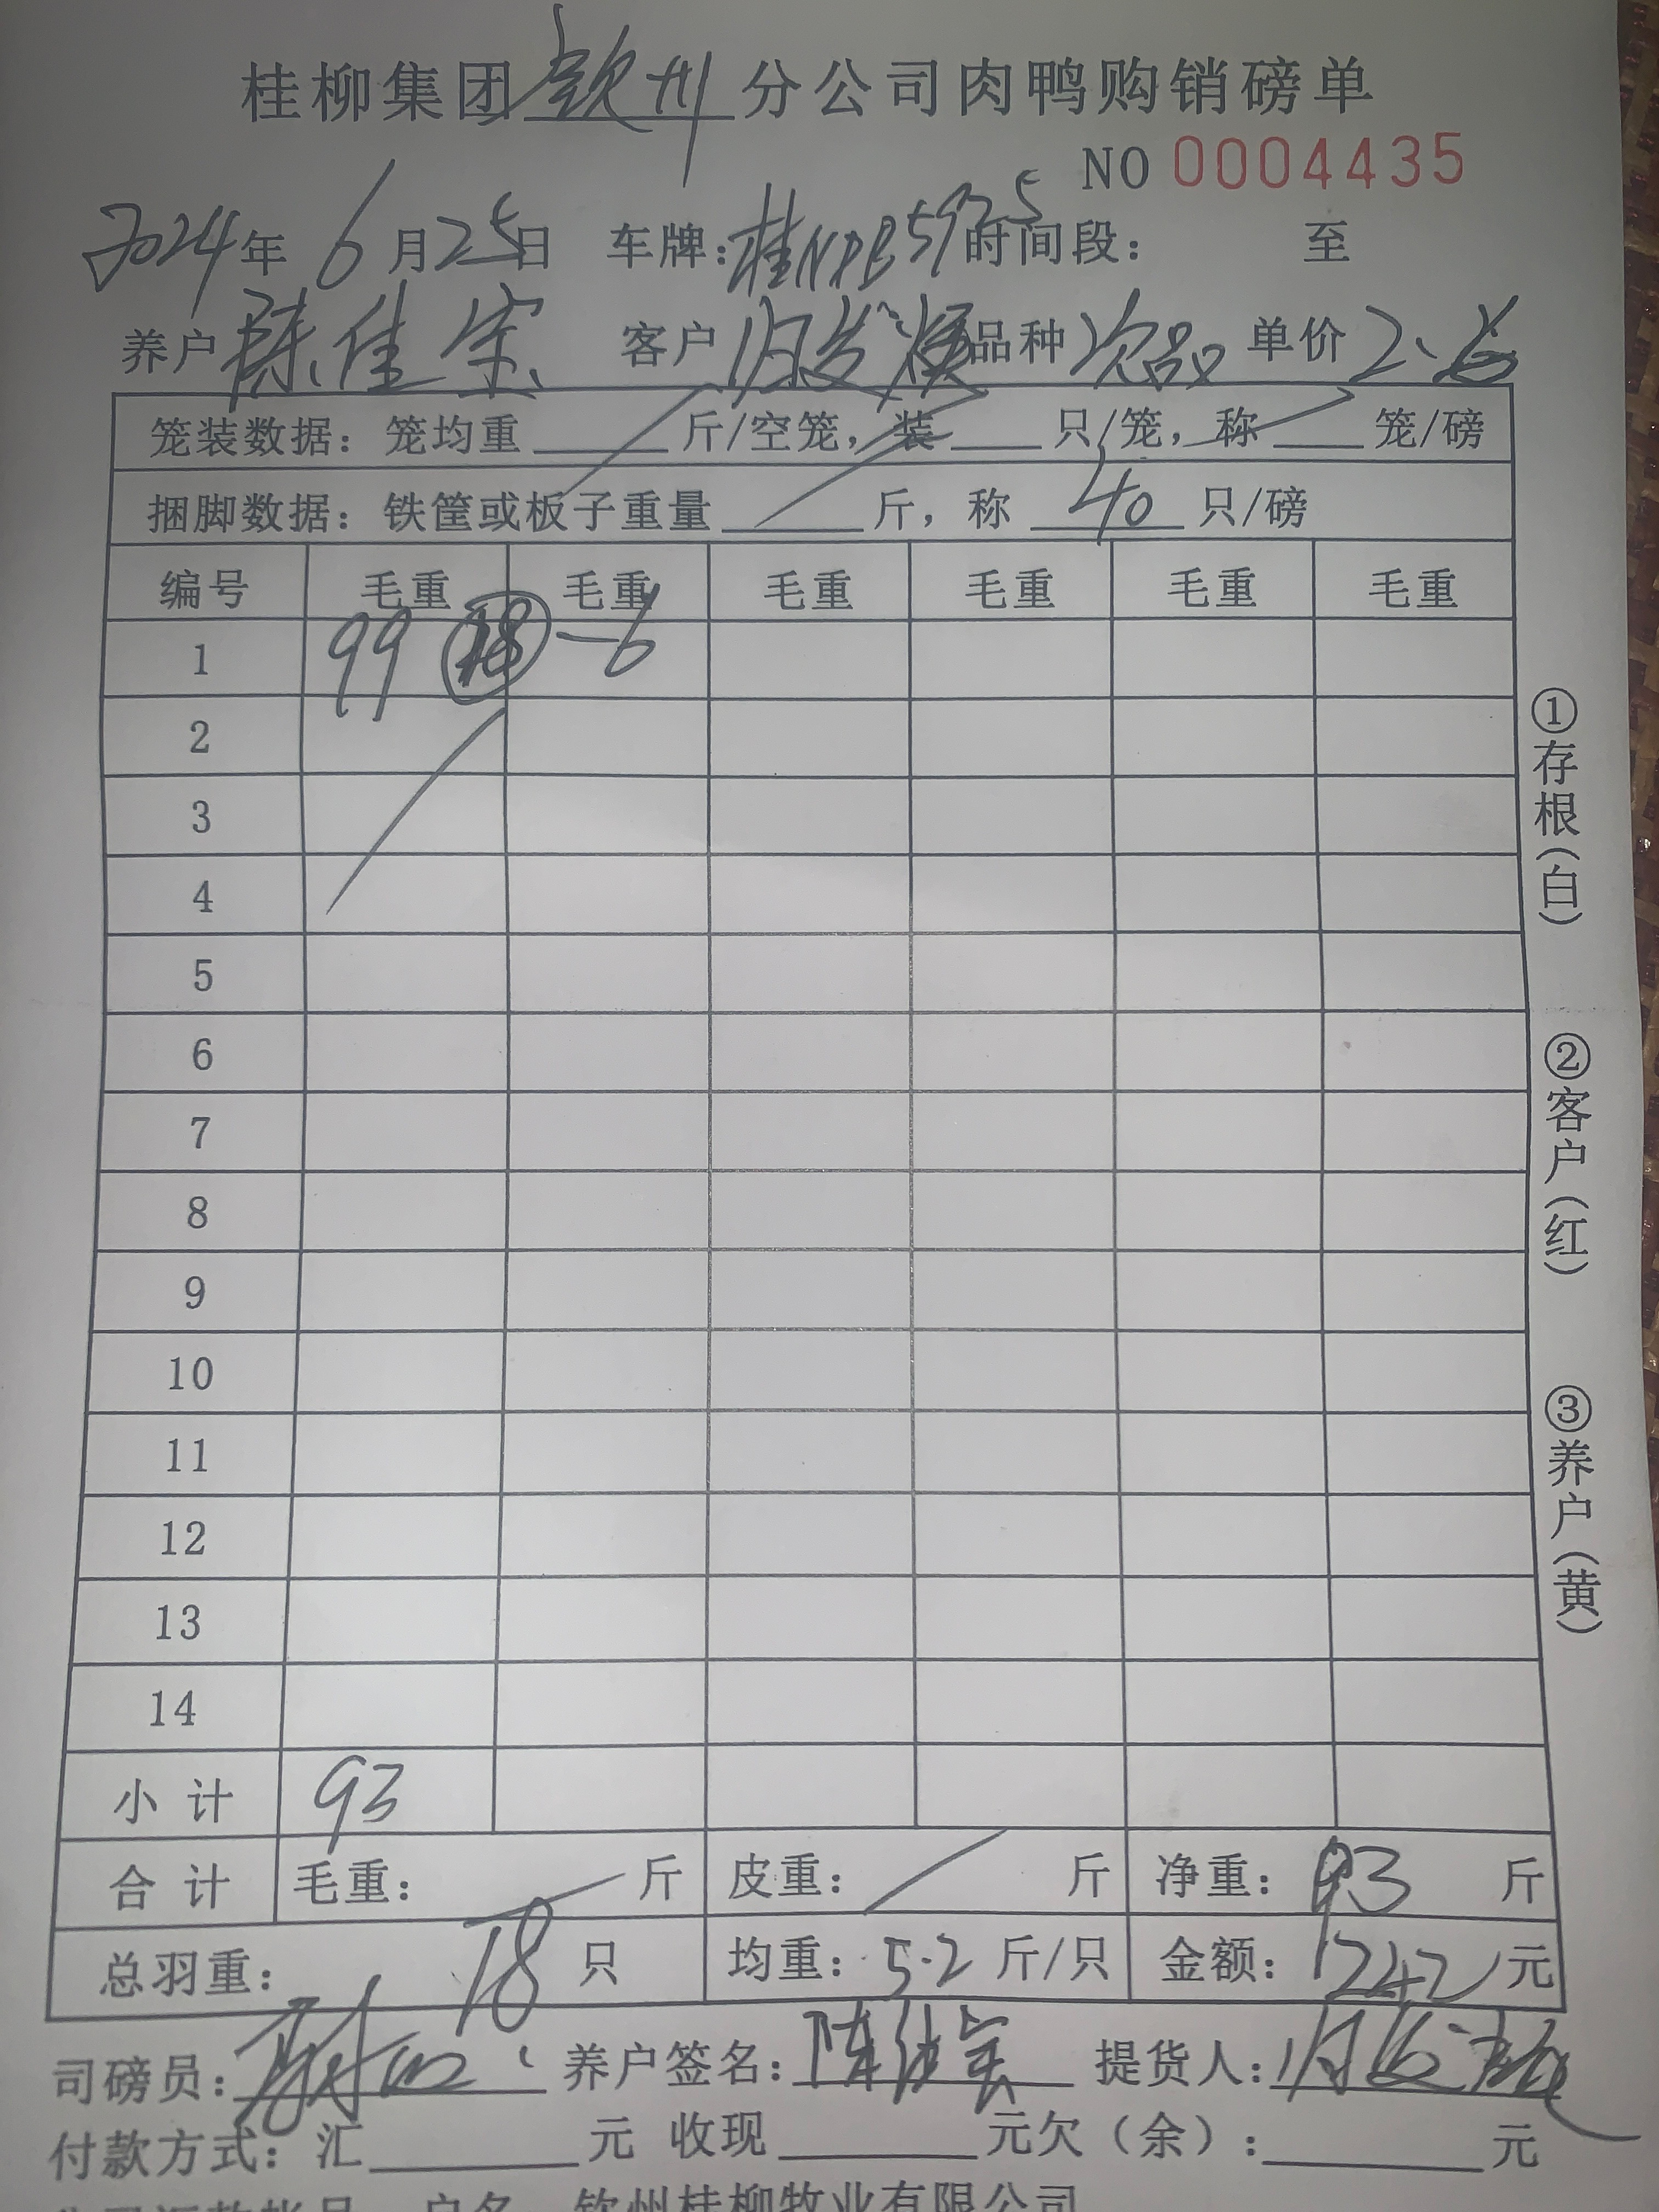 桂柳集团钦州分公司肉鸭购销磅单
NO 0004435
2024年 6月25日 车牌：桂NPB5925时间段： 至
养户 陈佳宗 客户 品种 次品 单价 2.6
笼装数据：笼均重 斤/空笼，装 只/笼，称 笼/磅
捆脚数据：铁筐或板子重量 斤，称 40 只/磅
编号 毛重 毛重 毛重 毛重 毛重 毛重
1 99 18 -6
2
3
4
5
6
7
8
9
10
11
12
13
14
小计 93
合计 毛重： 斤 皮重： 斤 净重：93 斤
总羽重： 18 只 均重：5.2 斤/只 金额：242 元
司磅员： 养户签名：陈佳宗 提货人：
付款方式：汇 元 收现 元欠（余）： 元
户名 钦州桂柳牧业有限公司
①存根（白）
②客户（红）
③养户（黄）